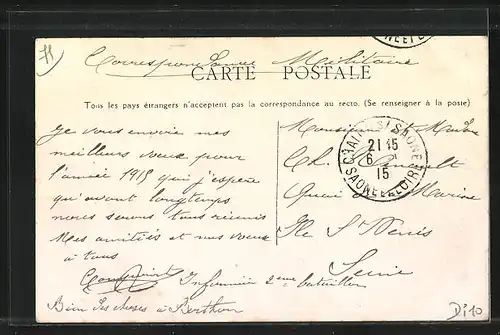 Correspondance Militaire
CARTE POSTALE
Tous les pays étrangers n'acceptent pas la correspondance au recto. (Se renseigner à la poste)
Je vous envoie mes
meilleurs vœux pour
l'année 1915 qui j'espère
qu'avant longtemps
nous serons tous réunis
Mes amitiés et nos vœux
à tous
Infirmier 2eme bataillon
Bien des choses à Berthon
Monsieur et Mme
Ch.
Quai de la Marine
Ile St Denis
Seine
CHALON S/ SAONE
21 15
6
15
SAONE ET LOIRE
Di 10